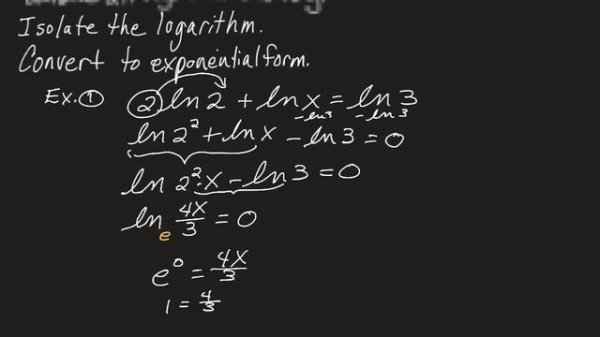 Isolate the logarithm.
Convert to exponential form.
Ex. ① ② ln 2 + ln x = ln 3
- ln 3 - ln 3
ln 2² + ln x - ln 3 = 0
ln 2² · x - ln 3 = 0
ln 4x/3 = 0
e
e⁰ = 4x/3
1 = 4/3